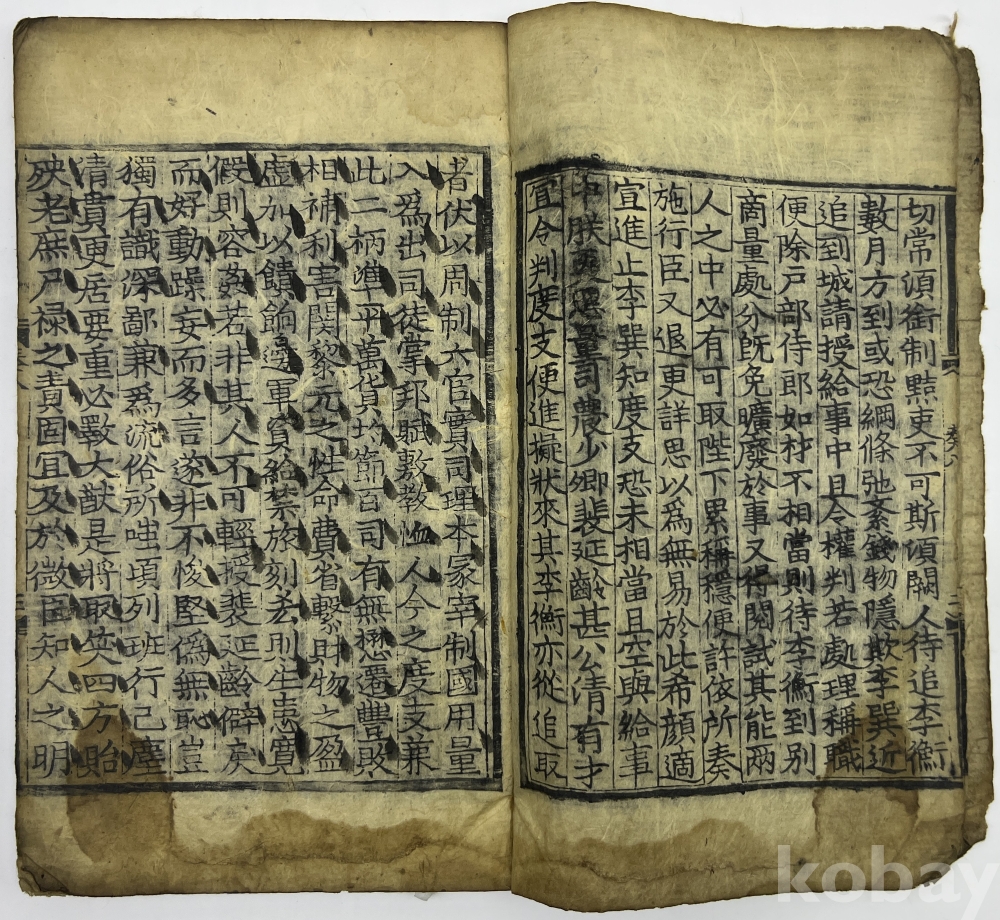 切常須銜制黙吏不可斯須闕人待追李衡
數月方到或恐綱條弛紊錢物隱欺李巽近
追到城請授給事中且令權判若處理稱職
便除戶部侍郎如材不相當則待李衡到別
商量處分旣免曠廢於事又得閱試其能兩
人之中必有可取陛下累稱穩便許依所奏
施行臣又退更詳思以爲無易於此希顔適
宜進止李巽知度支恐未相當且空與給事
中朕司農少卿裴延齡甚公清有才
宜令判度支便進擬狀來其李衡亦從追取
者伏以周制六官實司理本冢宰制國用量
入爲出司徒掌邦賦敷教恤人今之度支兼
此二柄準平萬貨均節百司有無懋遷豐敗
相補利害關黎元之性命費省繫財物之盈
虛加以饋餉邊軍資給禁旅刻吝則生患寬
假則容姦若非其人不可輕授裴延齡僻戾
而好動躁妄而多言遂非不悛堅僞無恥豈
獨有識深鄙兼爲流俗所嗤頃列班行已塵
清貴更居要重必斁大猷是將取笑四方貽
殃老庶尸祿之責固宜及於微臣知人之明
卷八
kobay